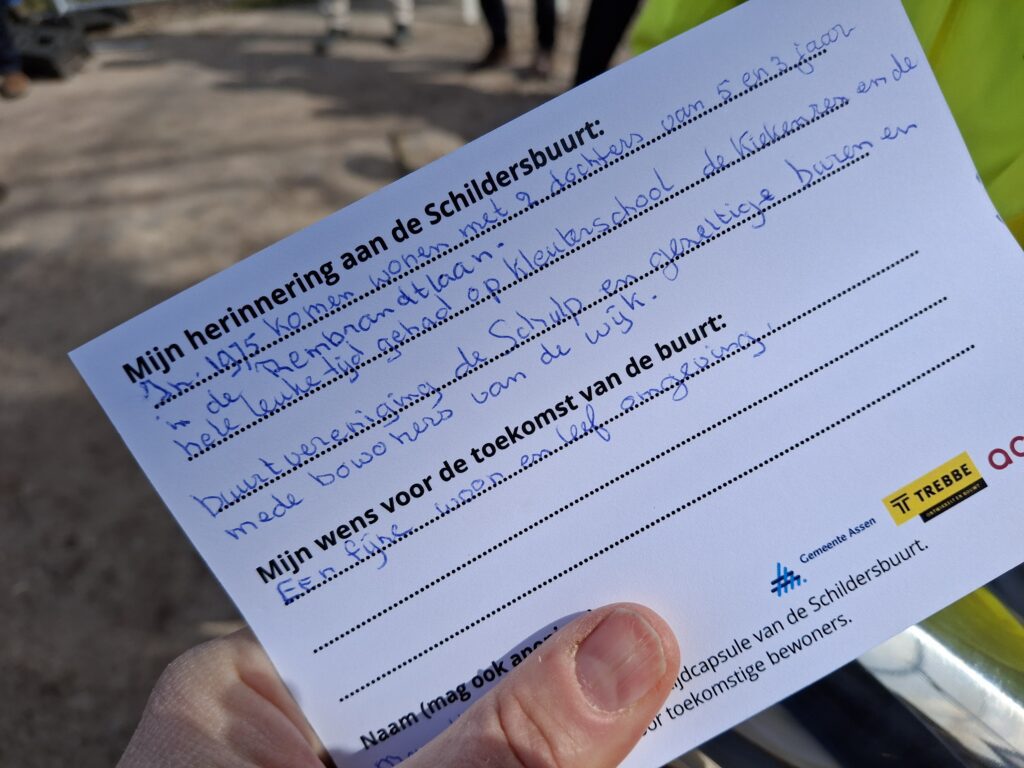 Mijn herinnering aan de Schildersbuurt:
In. 1975 komen wonen met 2 dochters van 5 en 3 jaar
in de Rembrandtlaan.
hele leuke tijd gehad op kleuterschool de Kiekensren en de
buurtvereniging de Schulp en gezellige buren en
mede bowoners van de wijk.
Mijn wens voor de toekomst van de buurt:
Een fijne woon en leef omgeving.
TREBBE
ONTWIKKELT EN BOUWT
ac
Gemeente Assen
Naam (mag ook anoni
ijdcapsule van de Schildersbuurt.
or toekomstige bewoners.